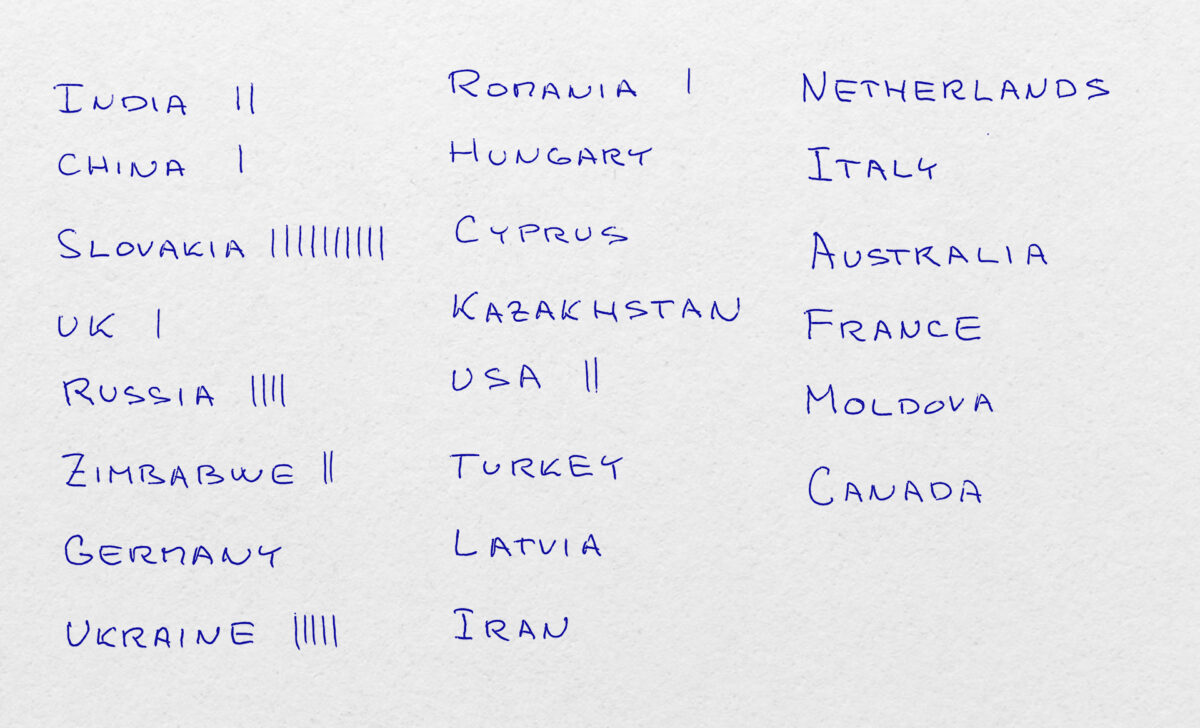 INDIA ||
CHINA |
SLOVAKIA ||||||||||
UK |
RUSSIA ||||
ZIMBABWE ||
GERMANY
UKRAINE |||||
ROMANIA |
HUNGARY
CYPRUS
KAZAKHSTAN
USA ||
TURKEY
LATVIA
IRAN
NETHERLANDS
ITALY
AUSTRALIA
FRANCE
MOLDOVA
CANADA